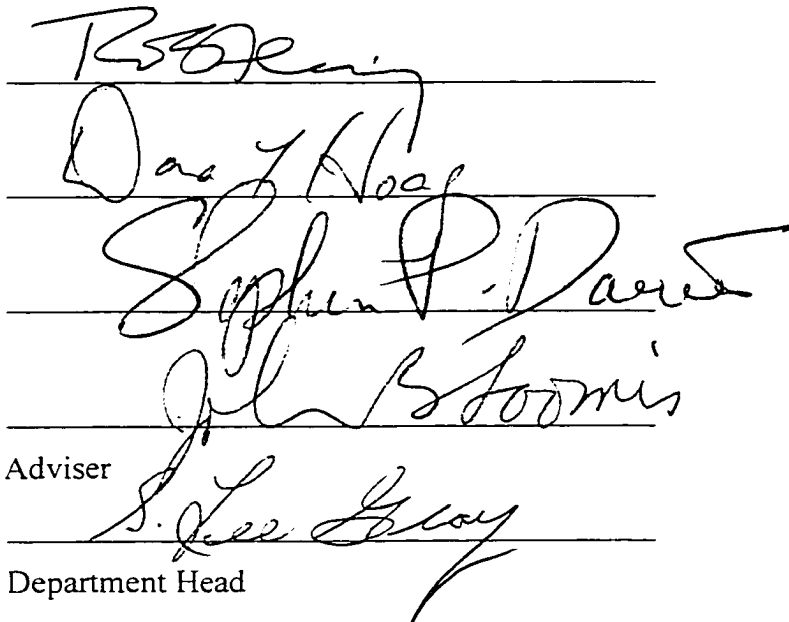 Dana L Hoag
Stephen P. Davies
John B Loomis
Adviser
S. Lee Gray
Department Head